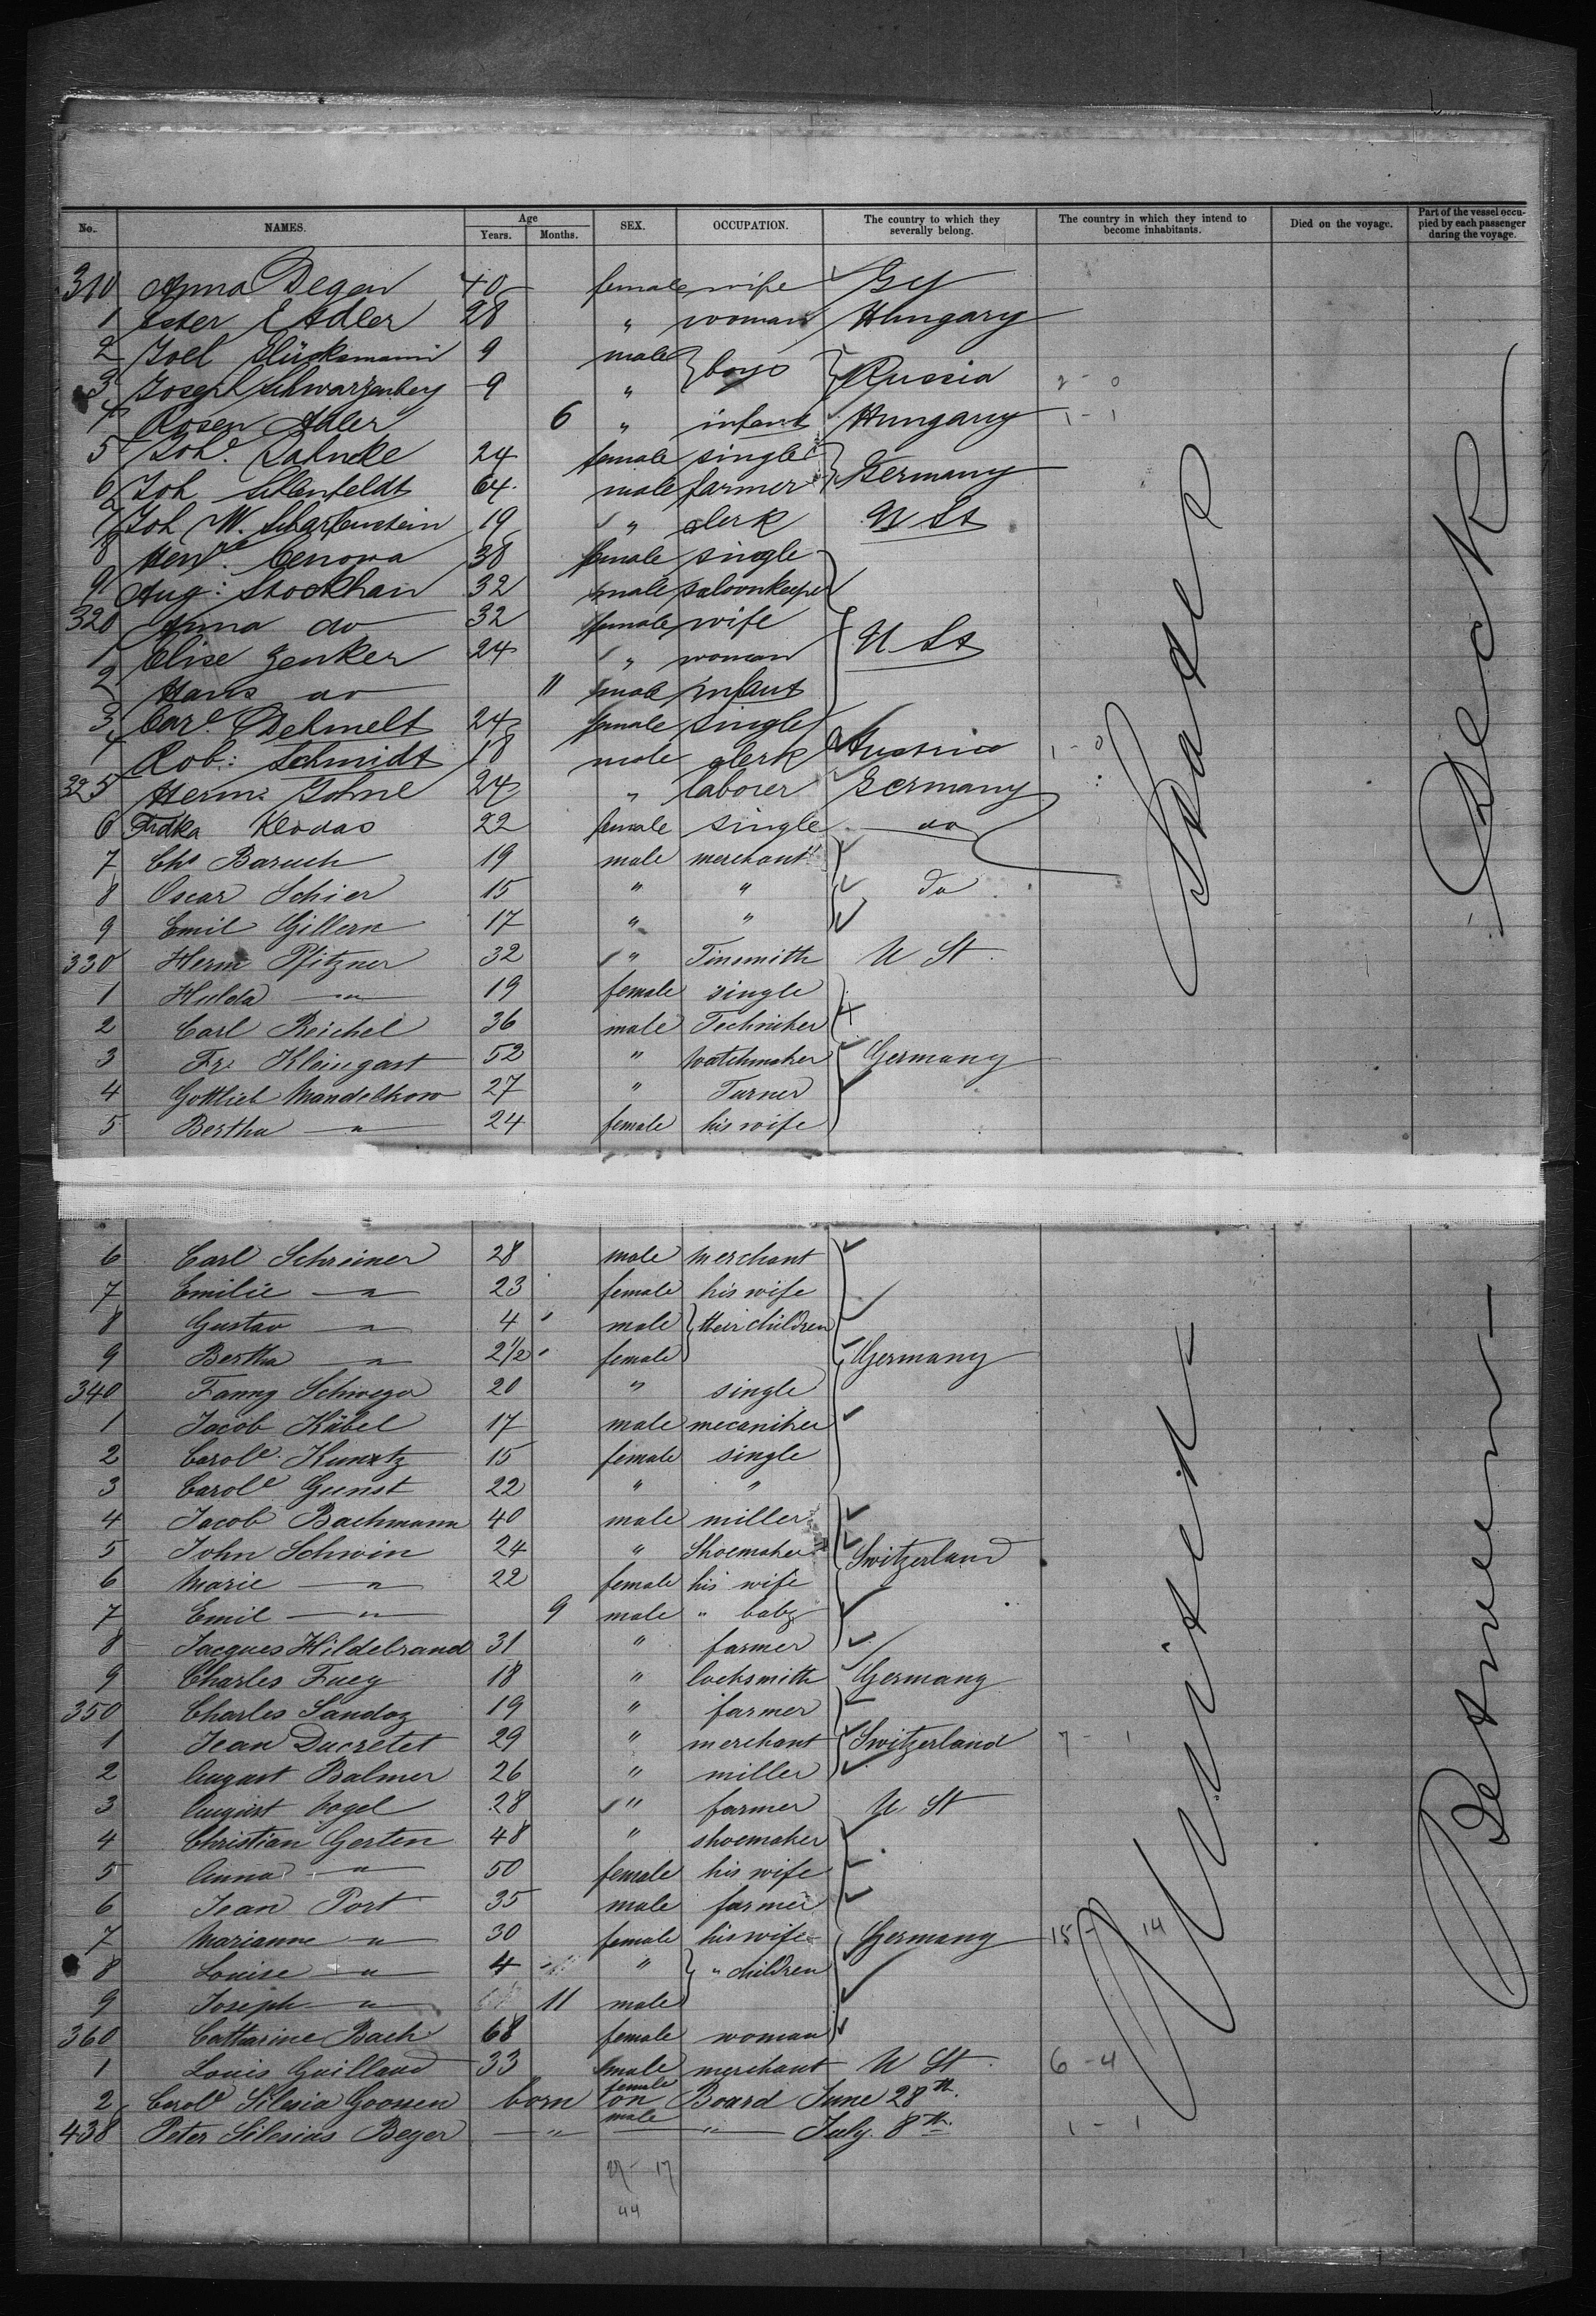 No. NAMES. Age Years. Months. SEX. OCCUPATION. The country to which they severally belong. The country in which they intend to become inhabitants. Died on the voyage. Part of the vessel occupied by each passenger during the voyage.
310 Anna Degen 40 female wife Gy
1 Ester E Adler 28 " woman Hungary
2 Joel Glücksmann 9 male } boys } Russia
3 Joseph Schwarzenberg 9 " 2 - 0
4 Rosen Adler 6 " infant Hungary 1 - 1
5 Johe. Dahncke 24 female single } Germany
6 Joh 64 male farmer
7 Joh W. Scharfenstein 19 " clerk U St
8 Henrtte. Cenowa 38 female single
9 Aug: Stockhan 32 male saloonkeeper
320 Anna do 32 female wife } U St
1 Elise Zenker 24 " woman
2 Hans do 11 male infant
3 Care. Dehmelt 24 female single
4 Rob: Schmidt 18 male clerk Austria 1 - 0
325 Herm: Johne 24 " laborer Germany
6 Frdka Klodas 22 female single do
7 Chs Baruch 19 male merchant
8 Oscar Schier 15 " " Do
9 Emil Gillern 17 " "
330 Herm Pfitzner 32 " Tinsmith U St.
1 Hulda " 19 female single
2 Carl Reichel 36 male Techniker
3 Fr. Kleingast 52 " Watchmaker Germany
4 Gottlieb Mandelkow 27 " Turner
5 Bertha " 24 female his wife
6 Carl Schreiner 28 male Merchant
7 Emilie " 23 female his wife
8 Gustav " 4 male } their children
9 Bertha " 2 1/2 female } Germany
340 Fanny Schwega 20 " single
1 Jacob Käbel 17 male mecaniker
2 Carole Kuntz 15 female single
3 Carole Gunst 22 " "
4 Jacob Bachmann 40 male miller
5 John Schwin 24 " Shoemaker Switzerland
6 Marie " 22 female his wife
7 Emil " 9 male " baby
8 Jacques Hildebrand 31 " farmer
9 Charles Fuey 18 " locksmith Germany
350 Charles Sandoz 19 " farmer
1 Jean Ducretet 29 " merchant Switzerland 7 - 1
2 August Balmer 26 " miller
3 August Vogel 28 " farmer U. St
4 Christian Gerten 48 " shoemaker
5 Anna " 50 female his wife
6 Jean Port 35 male farmer
7 Marianne " 30 female his wife Germany 15 - 14
8 Louise " 4 " } " children
9 Joseph " 11 male
360 Catharine Bach 68 female woman
1 Louis Guilland 33 male merchant U St. 6 - 4
2 Carole Silesia Goossen born female on Board June 28th.
438 Peter Silesius Beyer " male " July. 8th. 1 - 1
27 - 17
44
United States
Between Deck